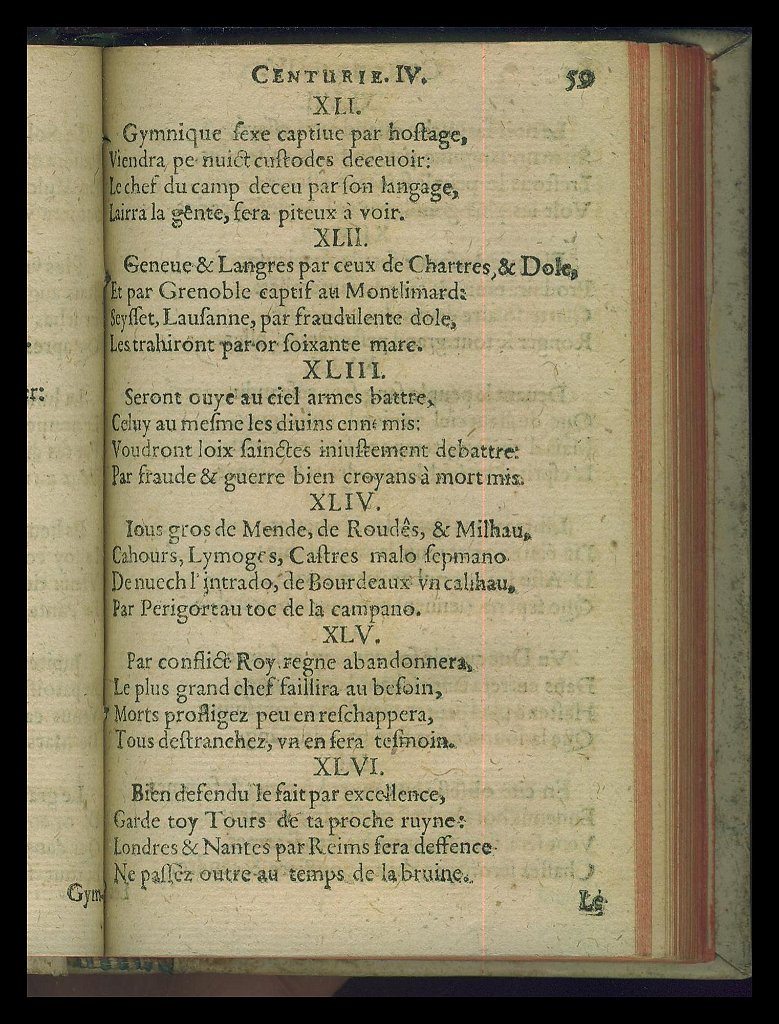 CENTURIE. IV. 59
XLI.
Gymnique ſexe captiue par hoſtage,
Viendra pe nuict cuſtodes deceuoir:
Le chef du camp deceu par ſon langage,
Lairra la gente, ſera piteux à voir.
XLII.
Geneue & Langres par ceux de Chartres, & Dole,
Et par Grenoble captif au Montlimard:
Seyſſet, Lauſanne, par fraudulente dole,
Les trahiront par or ſoixante marc.
XLIII.
Seront ouye au ciel armes battre,
Celuy au meſme les diuins ennemis:
Voudront loix ſainctes iniuſtement debattre:
Par fraude & guerre bien croyans à mort mis.
XLIV.
Tous gros de Mende, de Roudês, & Milhau,
Cahours, Lymoges, Caſtres malo ſepmano
De nuech l'intrado, de Bourdeaux vn cailhau,
Par Perigort au toc de la campano.
XLV.
Par conflict Roy regne abandonnera,
Le plus grand chef faillira au beſoin,
Morts profligez peu en reſchappera,
Tous deſtranchez, vn en ſera teſmoin.
XLVI.
Bien defendu le fait par excellence,
Garde toy Tours de ta proche ruyne:
Londres & Nantes par Reims fera deffence
Ne paſſez outre au temps de la bruine.
Le
er:
Gym